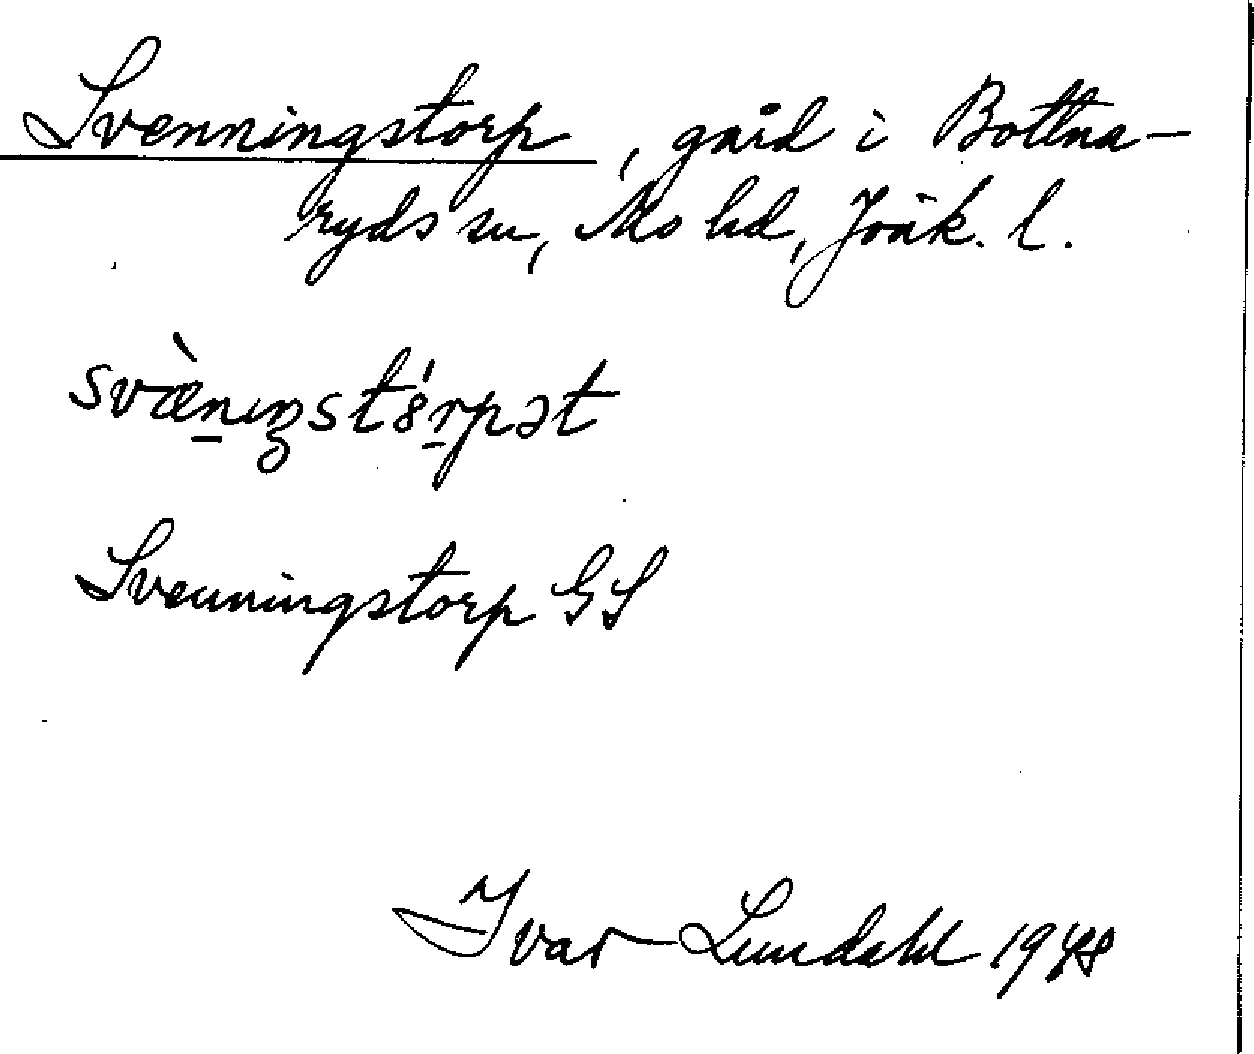 Svenningstorp, gård i Bottna-
ryds sn, Mo hd, Jönk. l.
svæ̀n̲ıŋst8́r̲pət
Svenningstorp GS
Ivar Lundahl 1948